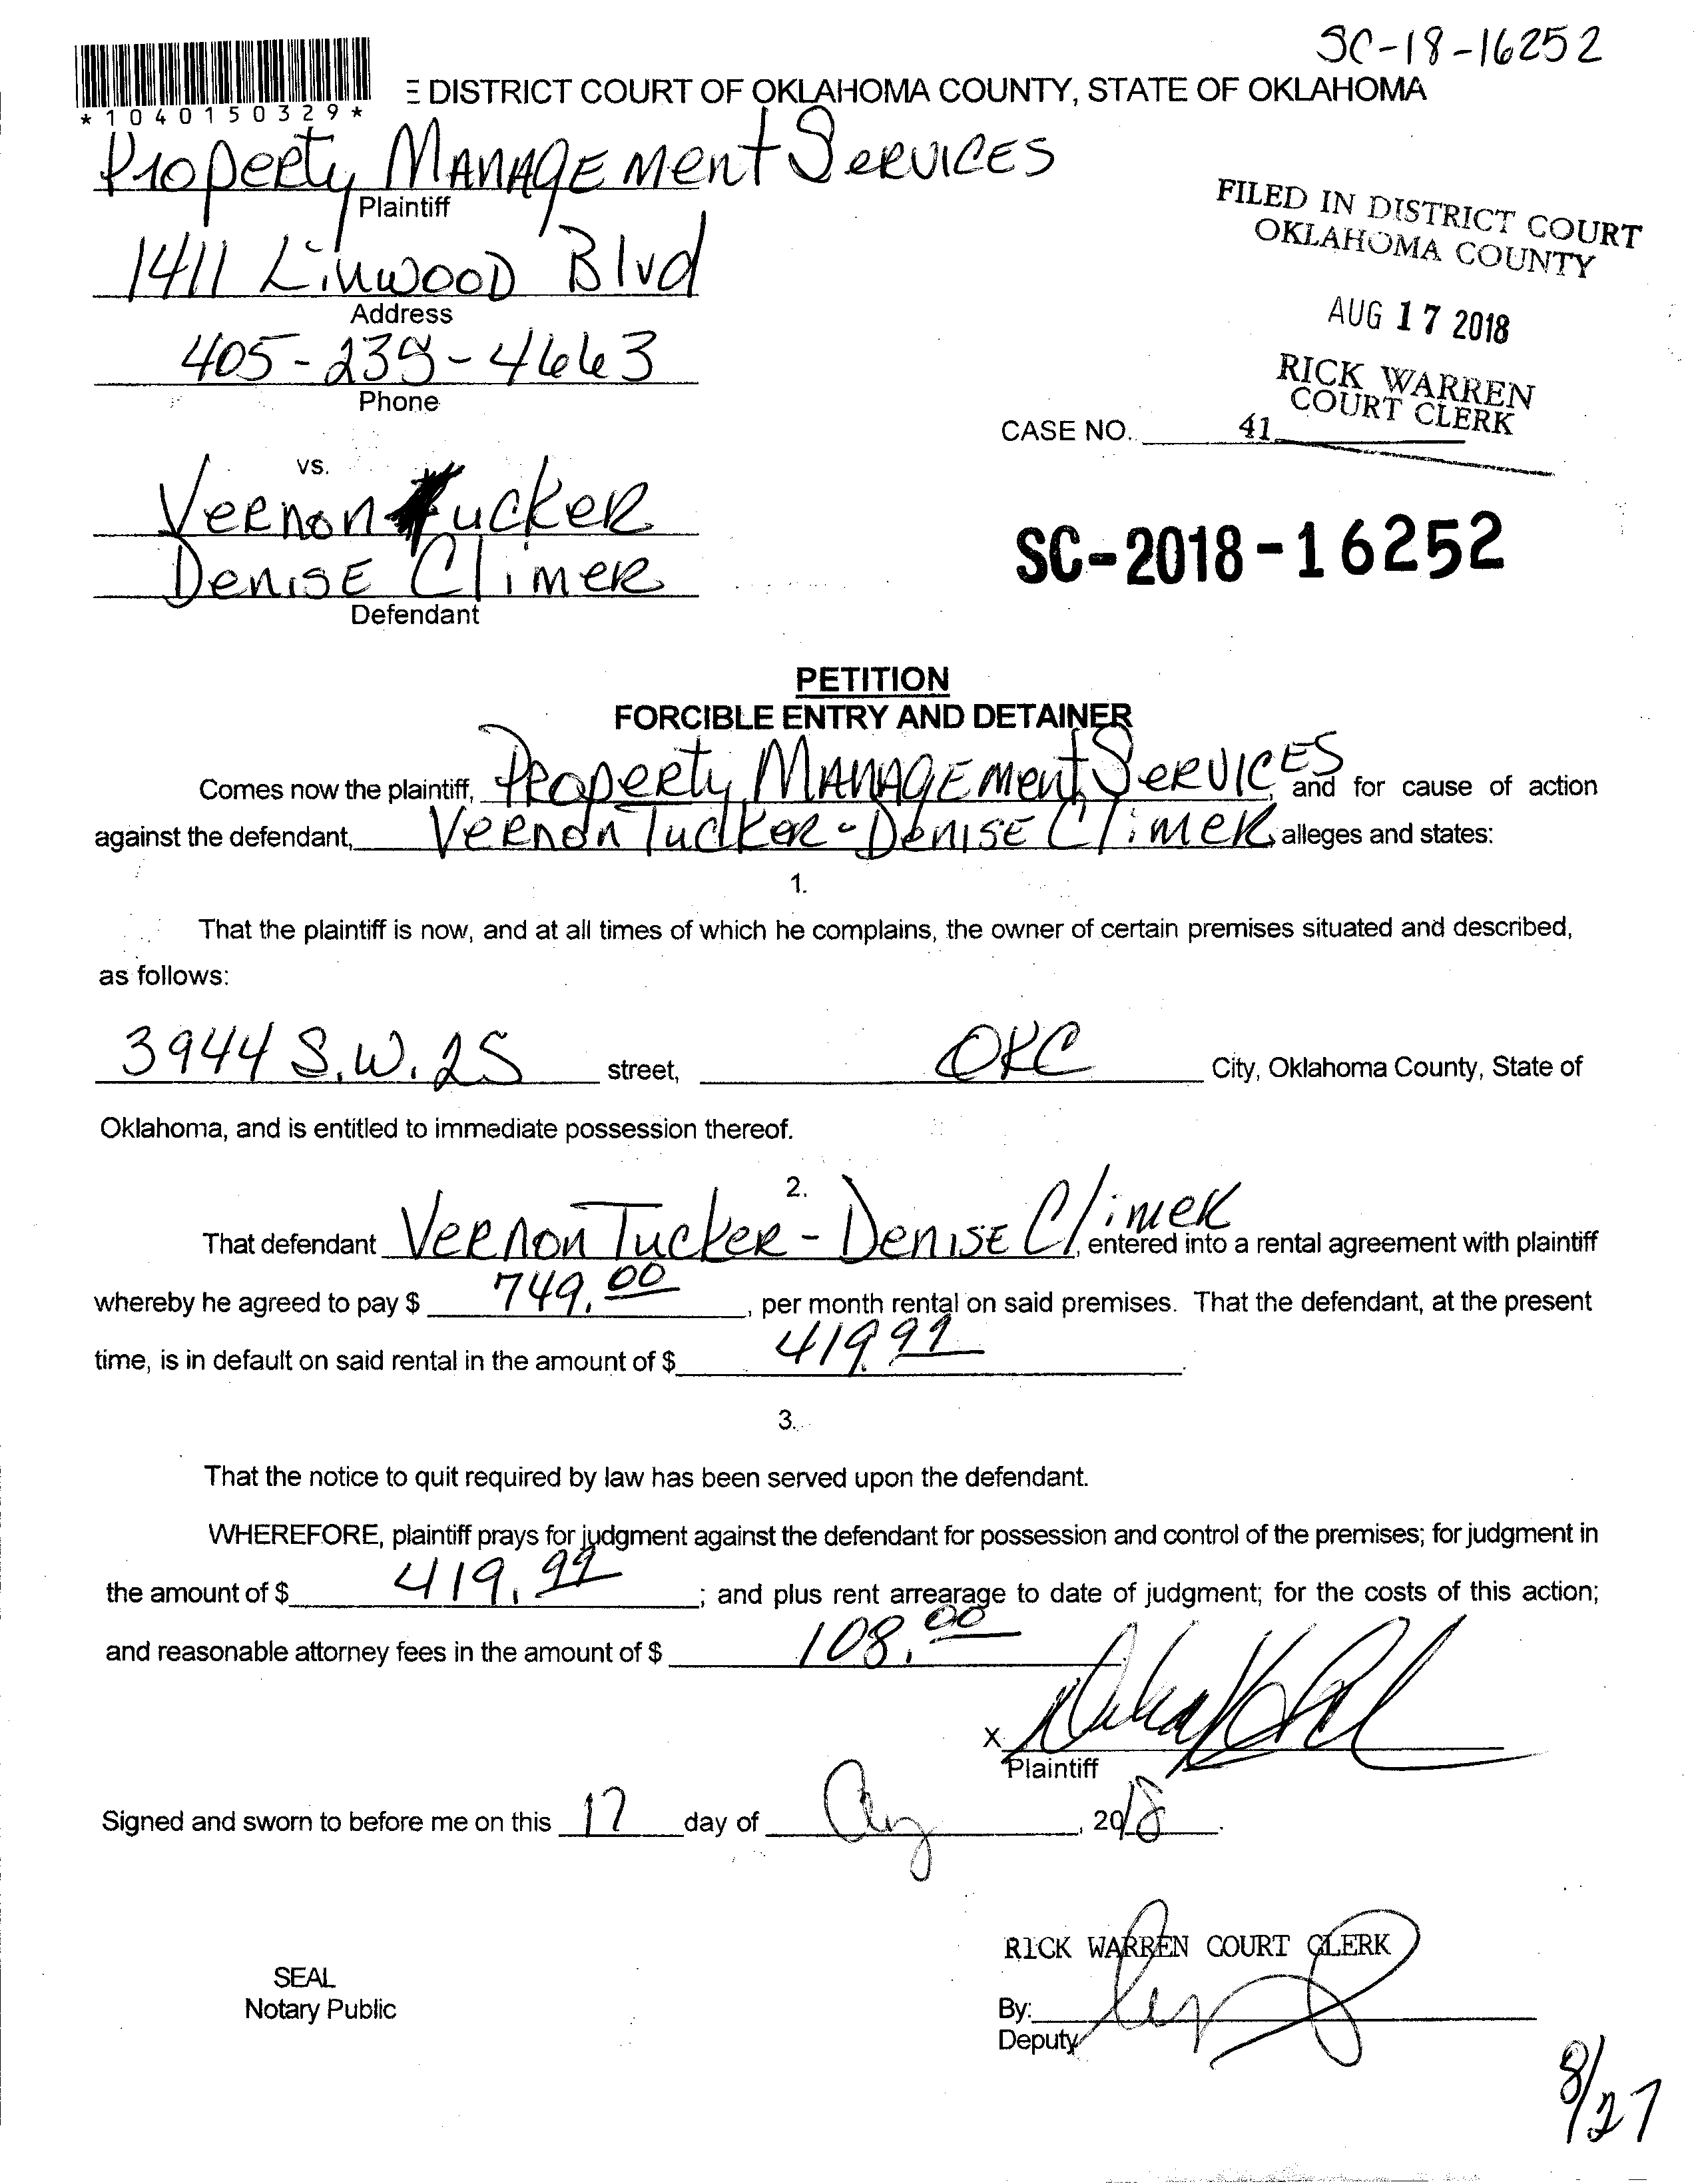 SC-18-16252
*1040150329*
E DISTRICT COURT OF OKLAHOMA COUNTY, STATE OF OKLAHOMA
Property Management Services
Plaintiff
1411 Linwood Blvd
Address
405-235-4663
Phone
FILED IN DISTRICT COURT
OKLAHOMA COUNTY
AUG 17 2018
RICK WARREN
COURT CLERK
CASE NO. 41
vs.
Vernon Tucker
Denise Climer
Defendant
SC-2018-16252
PETITION
FORCIBLE ENTRY AND DETAINER
Comes now the plaintiff, Property Management Services, and for cause of action
against the defendant, Vernon Tucker - Denise Climer alleges and states:
1.
That the plaintiff is now, and at all times of which he complains, the owner of certain premises situated and described,
as follows:
3944 S.W. 25 street, OKC City, Oklahoma County, State of
Oklahoma, and is entitled to immediate possession thereof.
2.
That defendant Vernon Tucker - Denise Climer, entered into a rental agreement with plaintiff
whereby he agreed to pay $ 749.00, per month rental on said premises. That the defendant, at the present
time, is in default on said rental in the amount of $ 419.99.
3.
That the notice to quit required by law has been served upon the defendant.
WHEREFORE, plaintiff prays for judgment against the defendant for possession and control of the premises; for judgment in
the amount of $ 419.99; and plus rent arrearage to date of judgment; for the costs of this action;
and reasonable attorney fees in the amount of $ 108.00.
X
Plaintiff
Signed and sworn to before me on this 17 day of Aug, 2018.
RICK WARREN COURT CLERK
SEAL
Notary Public
By:
Deputy
8/27